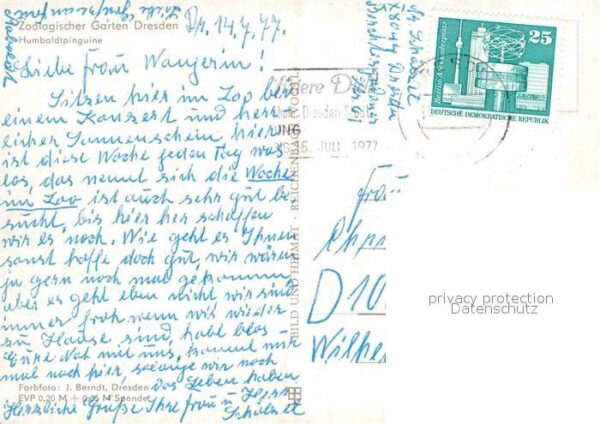 Zoologischer Garten Dresden
Humboldtpinguine
Dr. 14.7.77.
Liebe Frau Wangerin!
Sitzen hier im Zoo bei
einem Konzert und herr
licher Sonnenschein hier
ist diese Woche jeden Tag was
los, das nennt sich die Woche
im Zoo ist auch sehr gut be
sucht, bis hier her schaffen
wir es noch. Wie geht es Ihnen
sonst hoffe doch gut, wir wären
ja gern noch mal gekommen
aber es geht eben nicht wir sind
immer froh wenn wir wieder
zu Hause sind, habt blos
Eure Not mit uns, kommt
mal noch hier, solange wir noch
das Leben haben
Herzliche Grüße Ihre Frau u. Herr
Schälzel
Farbfoto: J. Berndt, Dresden
EVP 0,20 M + 0,05 M Spende
BILD UND HEIMAT · REICHENBACH
Dresden
JULI 1977
Berlin, Alexanderplatz
25
DEUTSCHE DEMOKRATISCHE REPUBLIK
Frau
D 10
Wilhe
privacy protection
Datenschutz